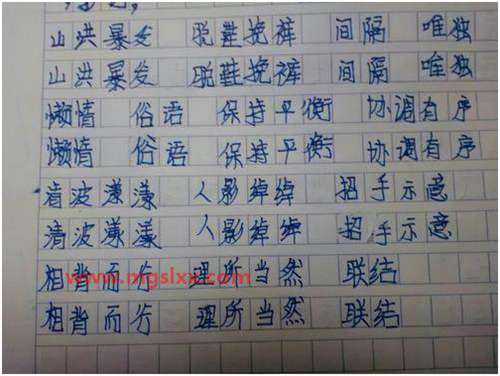 山洪暴发 脱鞋挽裤 间隔 唯独
山洪暴发 脱鞋挽裤 间隔 唯独
懒惰 俗语 保持平衡 协调有序
懒惰 俗语 保持平衡 协调有序
清波漾漾 人影绰绰 招手示意
清波漾漾 人影绰绰 招手示意
www.mgslxx.com
相背而行 理所当然 联结
相背而行 理所当然 联结